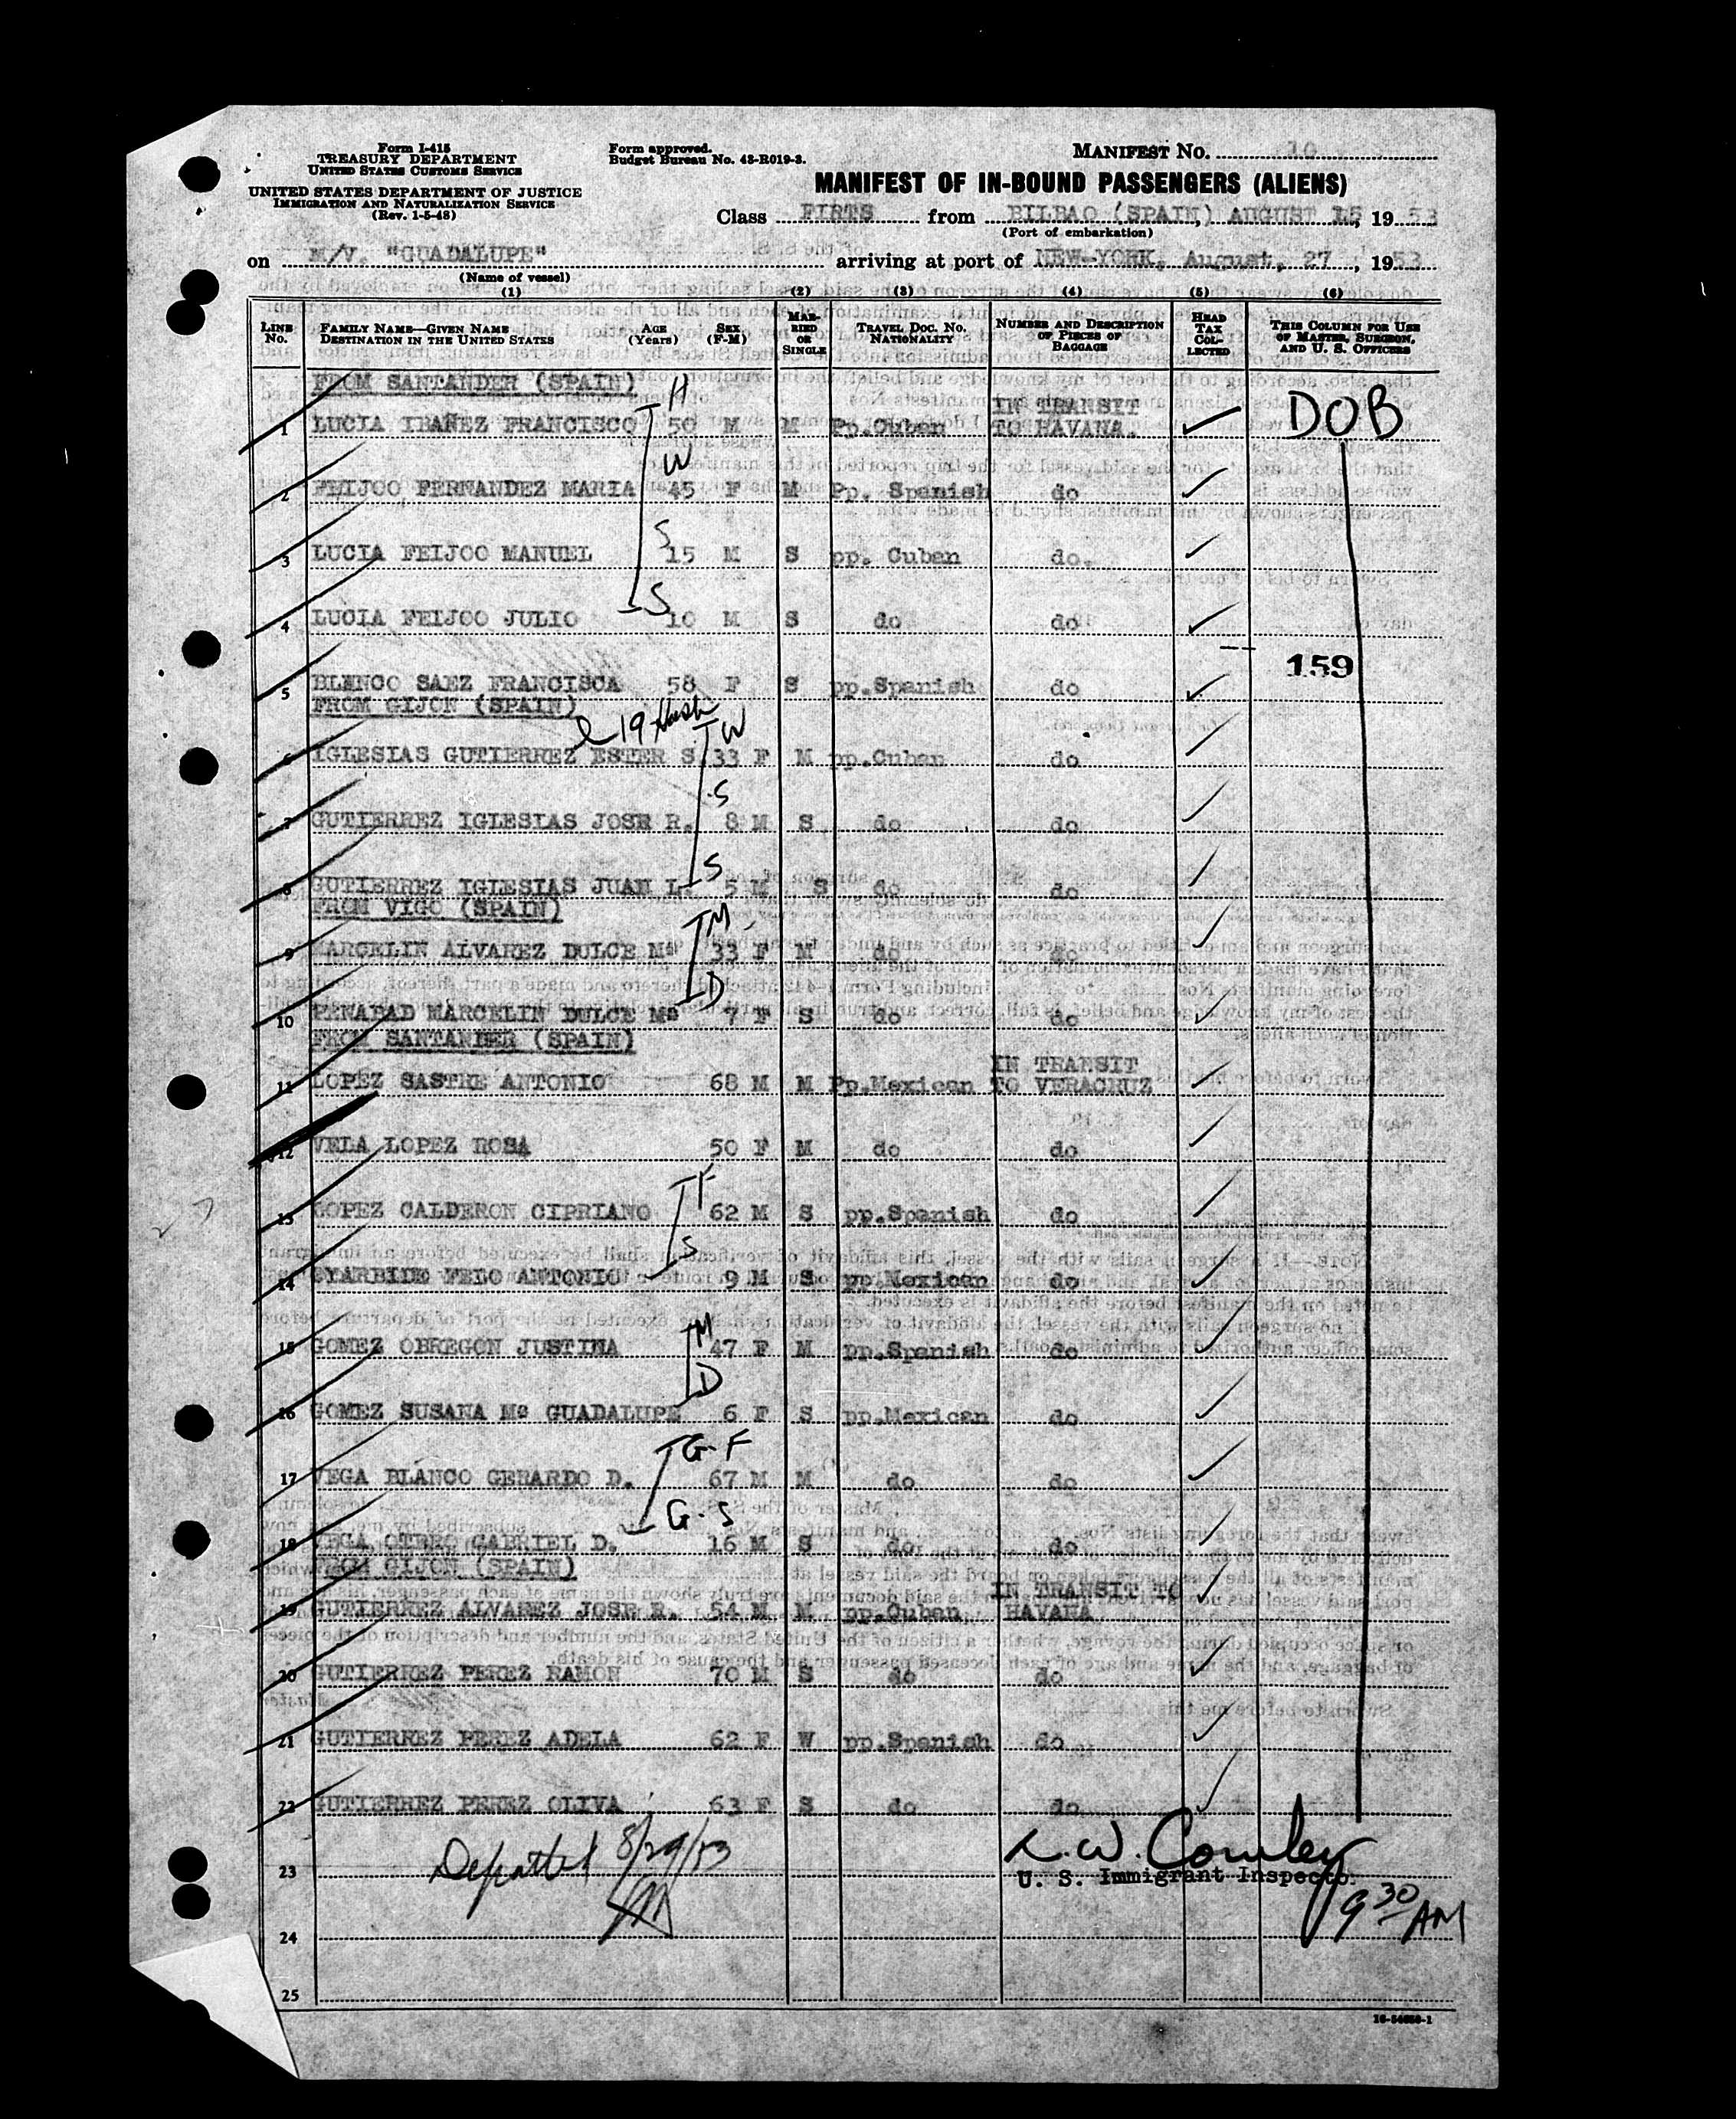 Form I-415
TREASURY DEPARTMENT
UNITED STATES CUSTOMS SERVICE
UNITED STATES DEPARTMENT OF JUSTICE
IMMIGRATION AND NATURALIZATION SERVICE
(Rev. 1-5-48)
Form approved.
Budget Bureau No. 43-R019-3.
MANIFEST NO. 10
MANIFEST OF IN-BOUND PASSENGERS (ALIENS)
Class FIRTS from BILBAO (SPAIN,) AUGUST 15, 1953
(Port of embarkation)
on M/V. "GUADALUPE" arriving at port of NEW-YORK, August, 27, 1953
(Name of vessel)
(1) (2) (3) (4) (5) (6)
LINE No. FAMILY NAME—GIVEN NAME DESTINATION IN THE UNITED STATES AGE (Years) SEX (F-M) MARRIED OR SINGLE TRAVEL DOC. NO. NATIONALITY NUMBER AND DESCRIPTION OF PIECES OF BAGGAGE HEAD TAX COLLECTED THIS COLUMN FOR USE OF MASTER, SURGEON, AND U. S. OFFICERS
FROM SANTANDER (SPAIN) H
1 LUCIA IBAÑEZ FRANCISCO 50 M M Pp.Cuban IN TRANSIT TO HAVANA. DOB
W
2 FEIJOO FERNANDEZ MARIA 45 F M Pp. Spanish do
S
3 LUCIA FEIJOO MANUEL 15 M S pp. Cuban do.
S
4 LUCIA FEIJOO JULIO 10 M S do do
159
5 BLANCO SAEZ FRANCISCA 58 F S pp.Spanish do
FROM GIJON (SPAIN)
W
6 IGLESIAS GUTIERREZ ESTER S. 33 F M pp.Cuban do
S
7 GUTIERREZ IGLESIAS JOSE R. 8 M S do do
S
8 GUTIERREZ IGLESIAS JUAN L. 5 M S do do
FROM VIGO (SPAIN)
M
9 MARCELIN ALVAREZ DULCE Mª 33 F M do do
D
10 PENABAD MARCELIN DULCE Mª 7 F S do do
FROM SANTANDER (SPAIN)
11 LOPEZ SASTRE ANTONIO 68 M M Pp.Mexican IN TRANSIT TO VERACRUZ
12 VELA LOPEZ ROSA 50 F M do do
F
13 LOPEZ CALDERON CIPRIANO 62 M S pp.Spanish do
S
14 ANTONIO 9 M S pp.Mexican do
M
15 GOMEZ OBREGON JUSTINA 47 F M pp.Spanish do
D
16 GOMEZ SUSANA Mª GUADALUPE 6 F S pp.Mexican do
G-F
17 VEGA BLANCO GERARDO D. 67 M M do do
G-S
18 VEGA OTERO GABRIEL D. 16 M S do do
FROM GIJON (SPAIN)
19 GUTIERREZ ALVAREZ JOSE R. 54 M M pp.Cuban IN TRANSIT TO HAVANA
20 GUTIERREZ PEREZ RAMON 70 M S do do
21 GUTIERREZ PEREZ ADELA 62 F W pp.Spanish do
22 GUTIERREZ PEREZ OLIVA 63 F S do do
Departed 8/29/53
23
U. S. Immigrant Inspector
9 30 AM
24
25